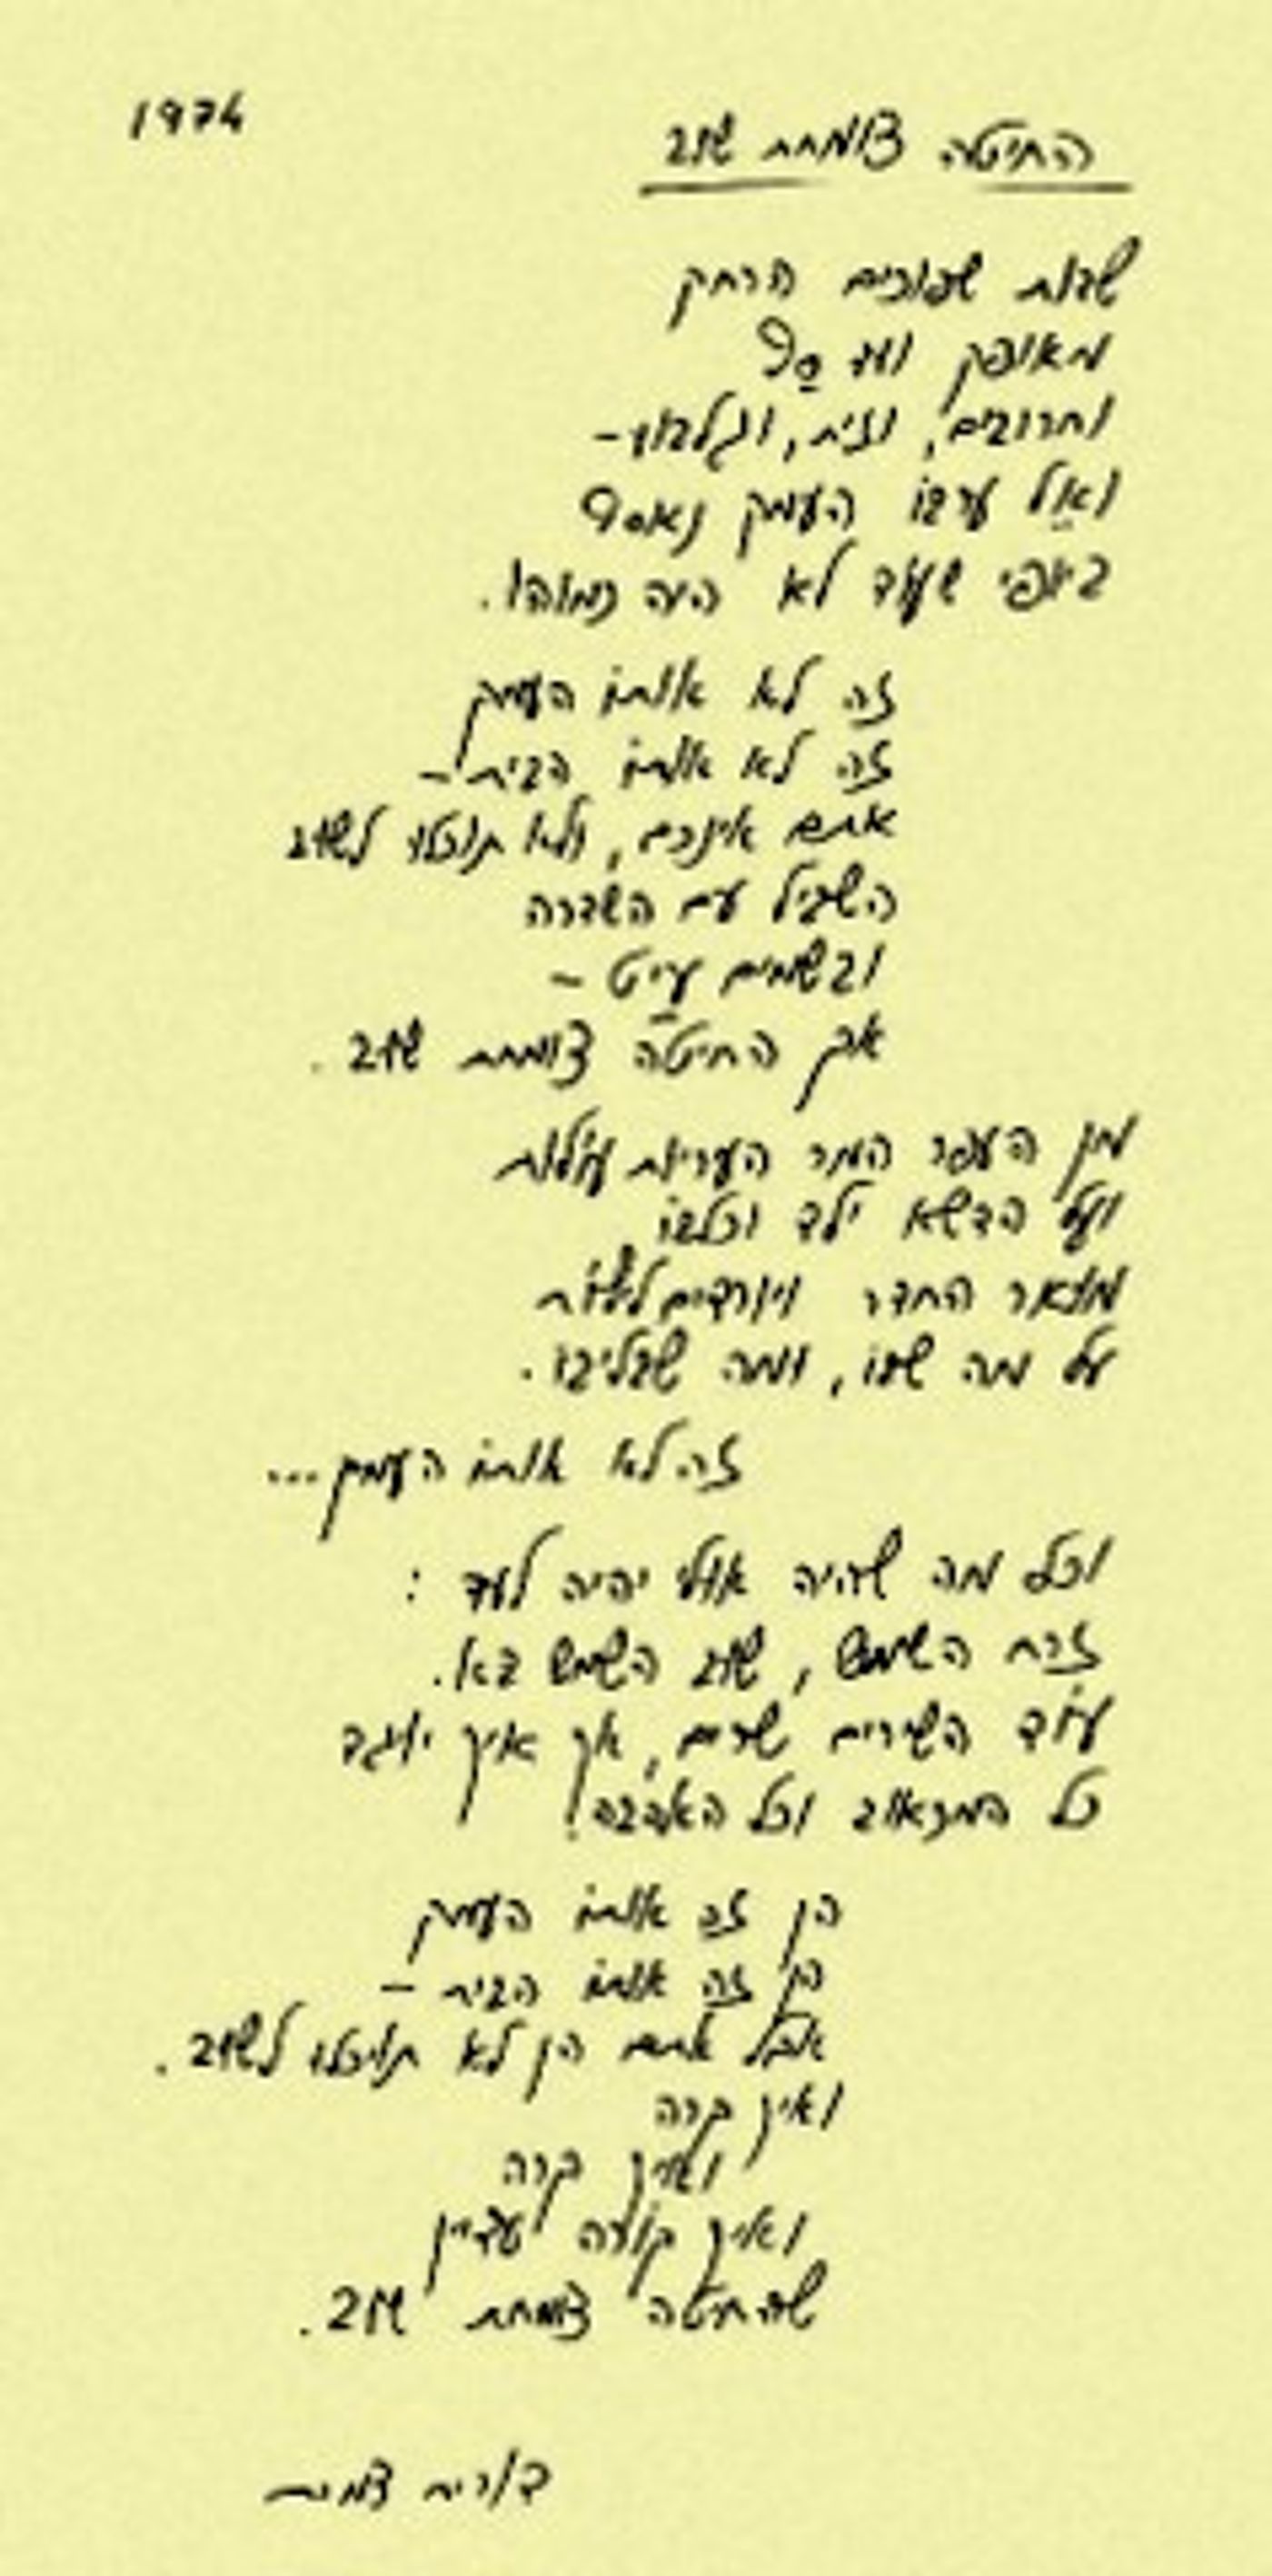 1974
החיטה צומחת שוב
שדות שפוכים הרחק
מאופק ועד סף
וחרובים, וזית, וגלבוע–
ואל ערבו העמק נאסף
ביופי שעוד לא היה כמוהו.
זה לא אותו העמק
זה לא אותו הבית–
אתם אינכם, ולא תוכלו לשוב
השביל עם השדרה
ובשמים עיט –
אך החיטה צומחת שוב.
מן העפר המר העריות עולות
ועל הדשא ילד וכלבו
מואר החדר ויורדים לילות
על מה שבו, ומה שבליבו.
זה לא אותו העמק...
וכל מה שהיה אולי יהיה לעד :
זרח השמש, שוב השמש בא.
עוד השירים שרים, אך איך יוגד
כל המכאוב וכל האהבה!
הן זה אותו העמק
הן זה אותו הבית –
אבל אתם הן לא תוכלו לשוב.
ואיך קרה
ואיך קרה
ואיך קורה עדיין
שהחיטה צומחת שוב.
דורית צמרת